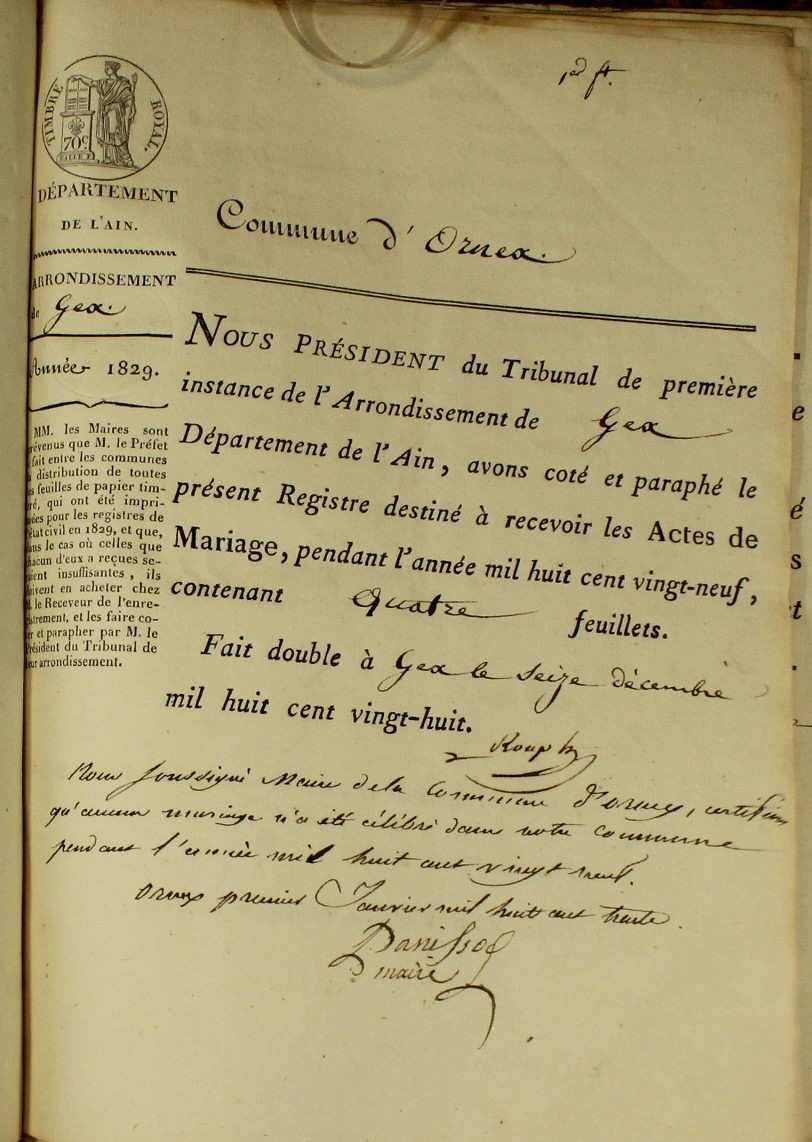 1er ft.
TIMBRE ROYAL.
70c
DÉPARTEMENT
DE L'AIN.
ARRONDISSEMENT
de Gex.
Année 1829.
MM. les Maires sont
prévenus que M. le Préfet
fait entre les communes
la distribution de toutes
les feuilles de papier tim-
bré, qui ont été impri-
mées pour les registres de
l'état civil en 1829, et que,
dans le cas où celles que
chacun d'eux a reçues se-
raient insuffisantes, ils
doivent en acheter chez
M. le Receveur de l'enre-
gistrement, et les faire co-
ter et parapher par M. le
Président du Tribunal de
leur arrondissement.
Commune d'Ornex.
NOUS PRÉSIDENT du Tribunal de première
instance de l'Arrondissement de Gex
Département de l'Ain, avons coté et paraphé le
présent Registre destiné à recevoir les Actes de
Mariage, pendant l'année mil huit cent vingt-neuf,
contenant Quatre feuillets.
Fait double à Gex le seize décembre
mil huit cent vingt-huit.
Nous soussigné Maire de la Commune d'ornex, certifions
qu'aucun mariage n'a été célébré dans notre commune
pendant l'année mil huit cent vingt neuf.
Ornex premier Janvier mil huit cent trente.
Panissod
maire